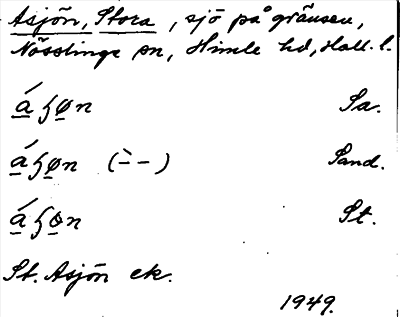 Asjön, Stora, sjö på gränsen,
Nösslinge sn, Himle hd, Hall. l.
á̱ɧø̱n Sa.
á̱ɧø̱n (̀- -) Sand.
á̱ɧɵ̱n St.
St. Asjön ek.
1949.